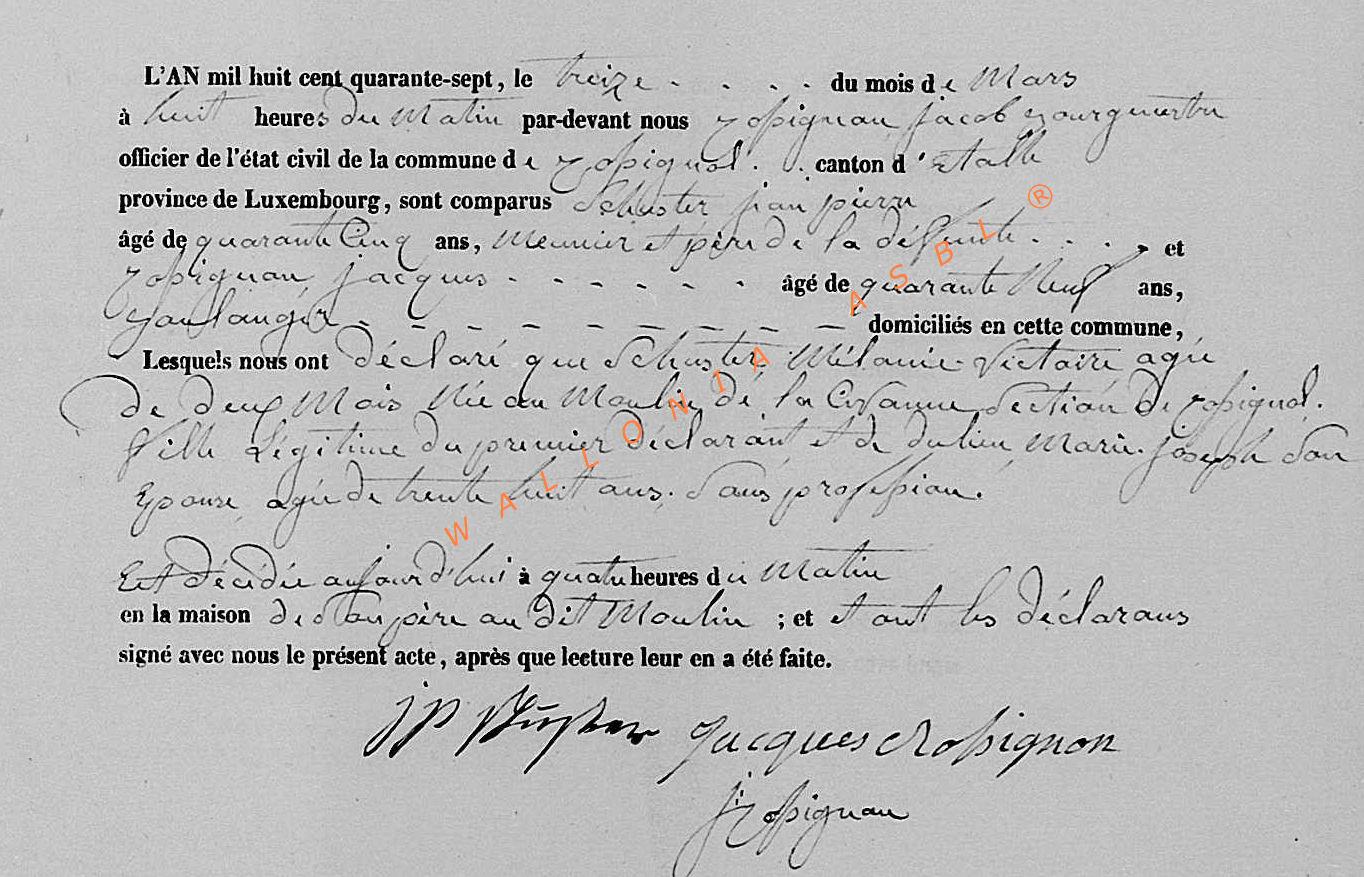 L'AN mil huit cent quarante-sept, le treize . . . . du mois de Mars
à huit heures du Matin par-devant nous Rossignon Jacob Bourguemetre
officier de l'état civil de la commune de Rossignol . . canton d'Etalle
province de Luxembourg, sont comparus Schuster jean pierre
âgé de quarante Cinq ans, Meunier et père de la défunte . . . , et
Rossignon jacques - - - - - - âgé de quarante Neuf ans,
Boulanger - - - - - - - - - domiciliés en cette commune,
Lesquels nous ont déclaré que Schuster Mélanie-Victoire agée
De deux Mois Née au Moulin de la Civanne, Section de Rossignol.
Fille Légitime du premier déclarant et de dulieu Marie-joseph Son
Epouse, agée de trente huit ans. Sans profession.
Est décédée aujourd'hui à quatre heures du Matin
en la maison de Son père au dit Moulin ; et et ont les déclarans
signé avec nous le présent acte, après que lecture leur en a été faite.
jP Schuster Jacques Rossignon
J Rossignon
WALLONIA ASBL ®